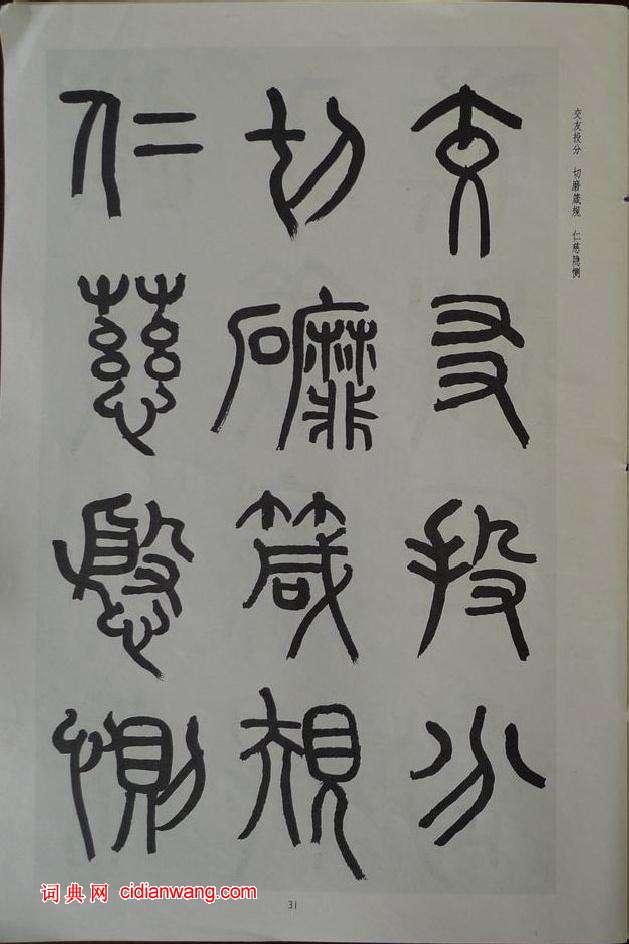 交友投分 切磨箴规 仁慈隐恻
交友投分
切磨箴規
仁慈慇惻
31
词典网 cidianwang.com